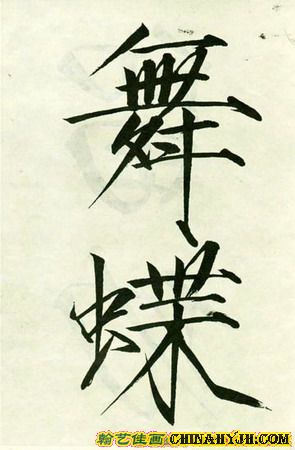 舞
蝶
翰艺佳画 CHINAHYJH.COM